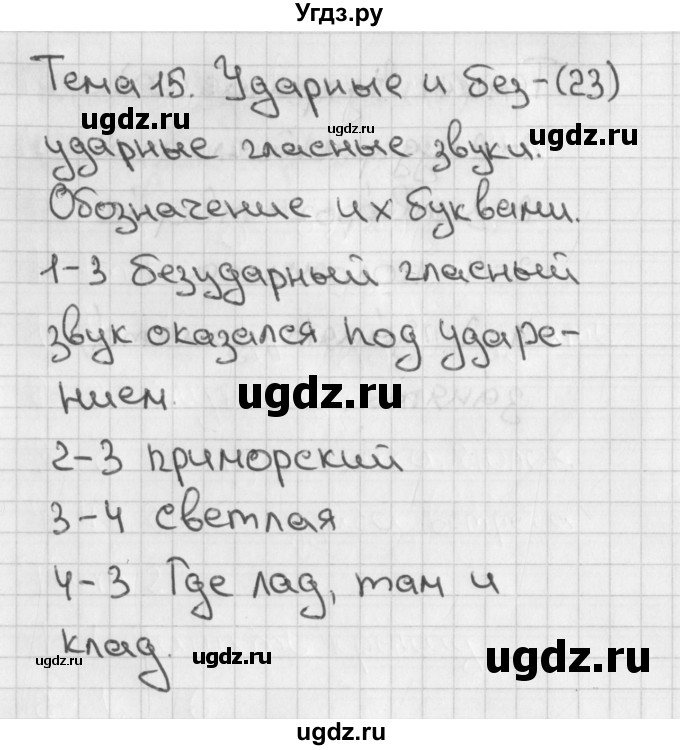 Угдз.ру
Тема 15. Ударные и без-(23)
ugdz.ru ugdz.ru ugdz.ru
ударные гласные звуки.
Обозначение их буквами.
1-3 безударный гласный
звук оказался под ударе-
нием. ugdz.ru ugdz.ru
2-3 приморский
3-4 светлая
4-3 Где лад, там и
клад.
ugdz.ru ugdz.ru ugdz.ru
ugdz.ru